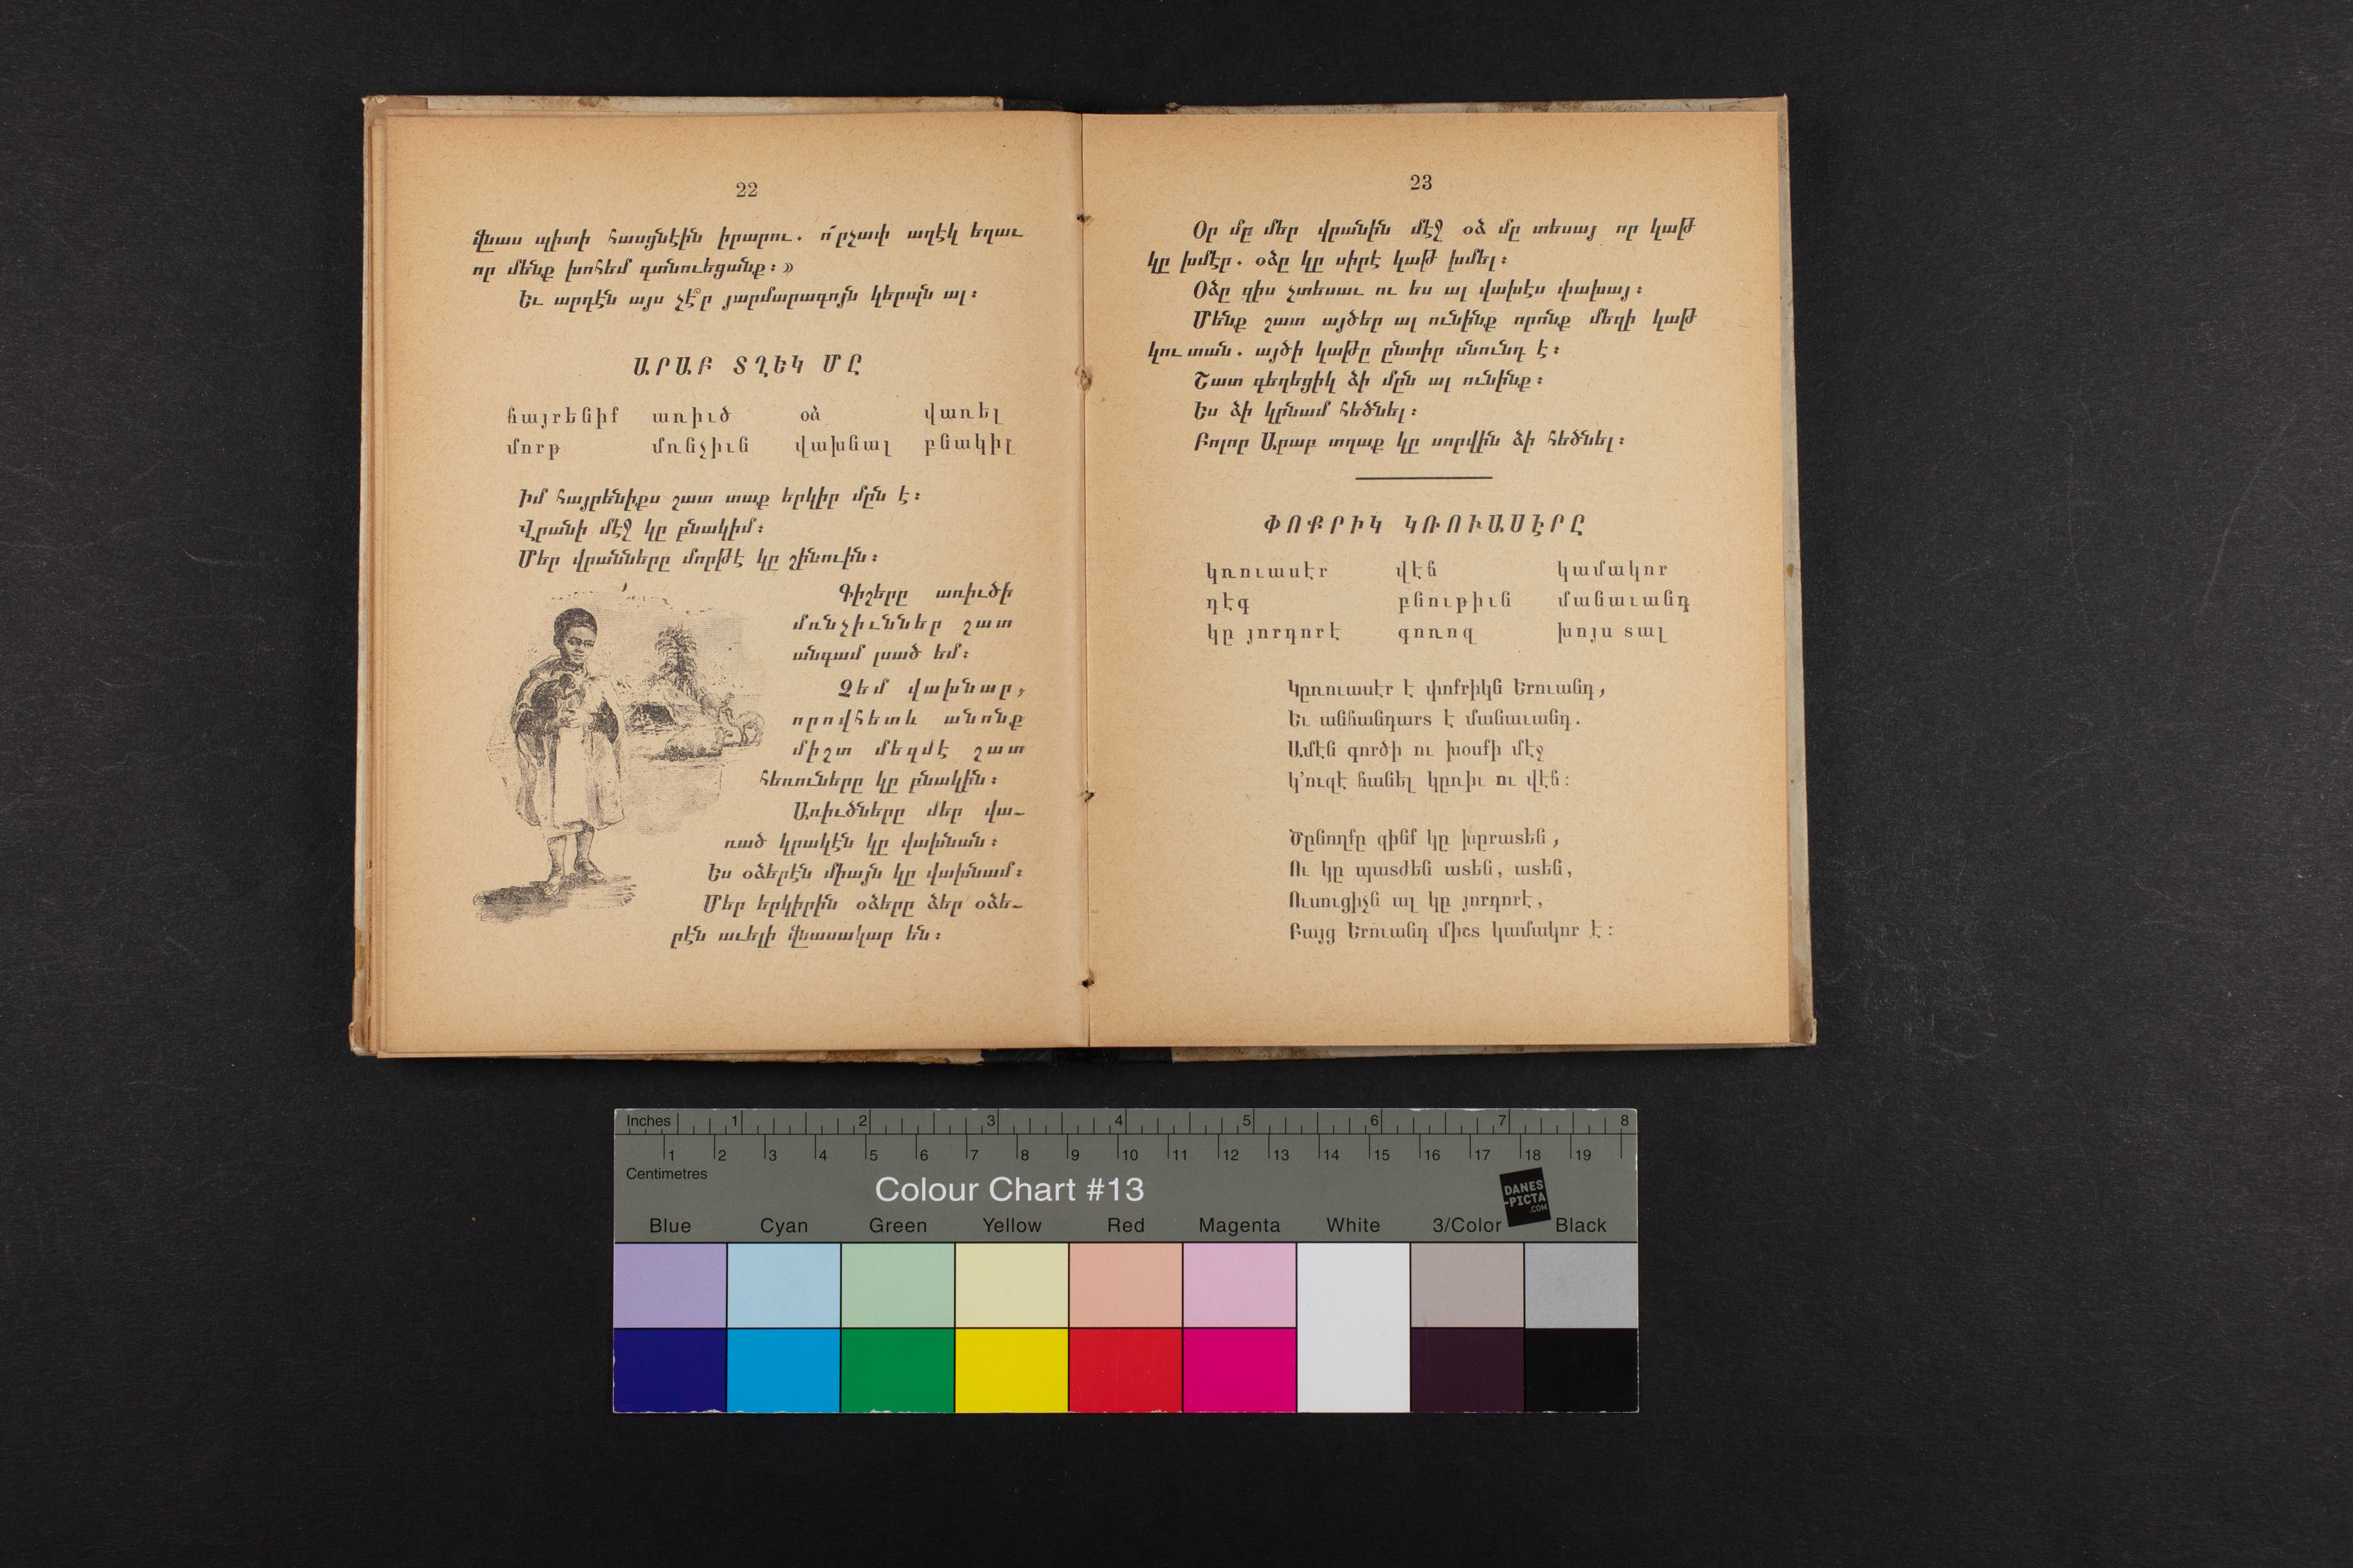 22
վնաս պիտի հասցնէին իրարու. ո՜րչափ աղէկ եղաւ
որ մենք խոհեմ գտնուեցանք։»
Եւ արդէն այս չէ՞ր յարմարագոյն կերպն ալ։
ԱՐԱԲ ՏՂԵԿ ՄԸ
հայրենիք առիւծ օձ վառել
մորթ մռնչիւն վախնալ բնակիլ
Իմ հայրենիքս շատ տաք երկիր մըն է։
Վրանի մէջ կը բնակիմ։
Մեր վրանները մորթէ կը շինուին։
Գիշերը առիւծի
մռնչիւններ շատ
անգամ լսած եմ։
Չեմ վախնար,
որովհետև անոնք
միշտ մեզմէ շատ
հեռուները կը բնակին։
Առիւծները մեր վա-
ռած կրակէն կը վախնան։
Ես օձերէն միայն կը վախնամ։
Մեր երկիրին օձերը ձեր օձե-
րէն աւելի վնասակար են։
23
Օր մը մեր վրանին մէջ օձ մը տեսայ որ կաթ
կը խմէր. օձը կը սիրէ կաթ խմել։
Օձը զիս չտեսաւ ու ես ալ վախէս փախայ։
Մենք շատ այծեր ալ ունինք որոնք մեզի կաթ
կու տան. այծի կաթը ընտիր սնունդ է։
Շատ գեղեցիկ ձի մըն ալ ունինք։
Ես ձի կրնամ հեծնել։
Բոլոր Արաբ տղաք կը սորվին ձի հեծնել։
ՓՈՔՐԻԿ ԿՌՈՒԱՍԷՐԸ
կռուասէր վէճ կամակոր
դէգ բնութիւն մանաւանդ
կը յորդորէ գոռոզ խոյս տալ
Կըռուասէր է փոքրիկն Երուանդ,
Եւ անհանդարտ է մանաւանդ.
Ամէն գործի ու խօսքի մէջ
կ՚ուզէ հանել կըռիւ ու վէճ։
Ծընողքը զինք կը խըրատեն,
Ու կը պատժեն ատեն, ատեն,
Ուսուցիչն ալ կը յորդորէ,
Բայց Երուանդ միշտ կամակոր է։
Inches 1 2 3 4 5 6 7 8
1 2 3 4 5 6 7 8 9 10 11 12 13 14 15 16 17 18 19
Centimetres
Colour Chart #13
DANES
-PICTA
.COM
Blue Cyan Green Yellow Red Magenta White 3/Color Black